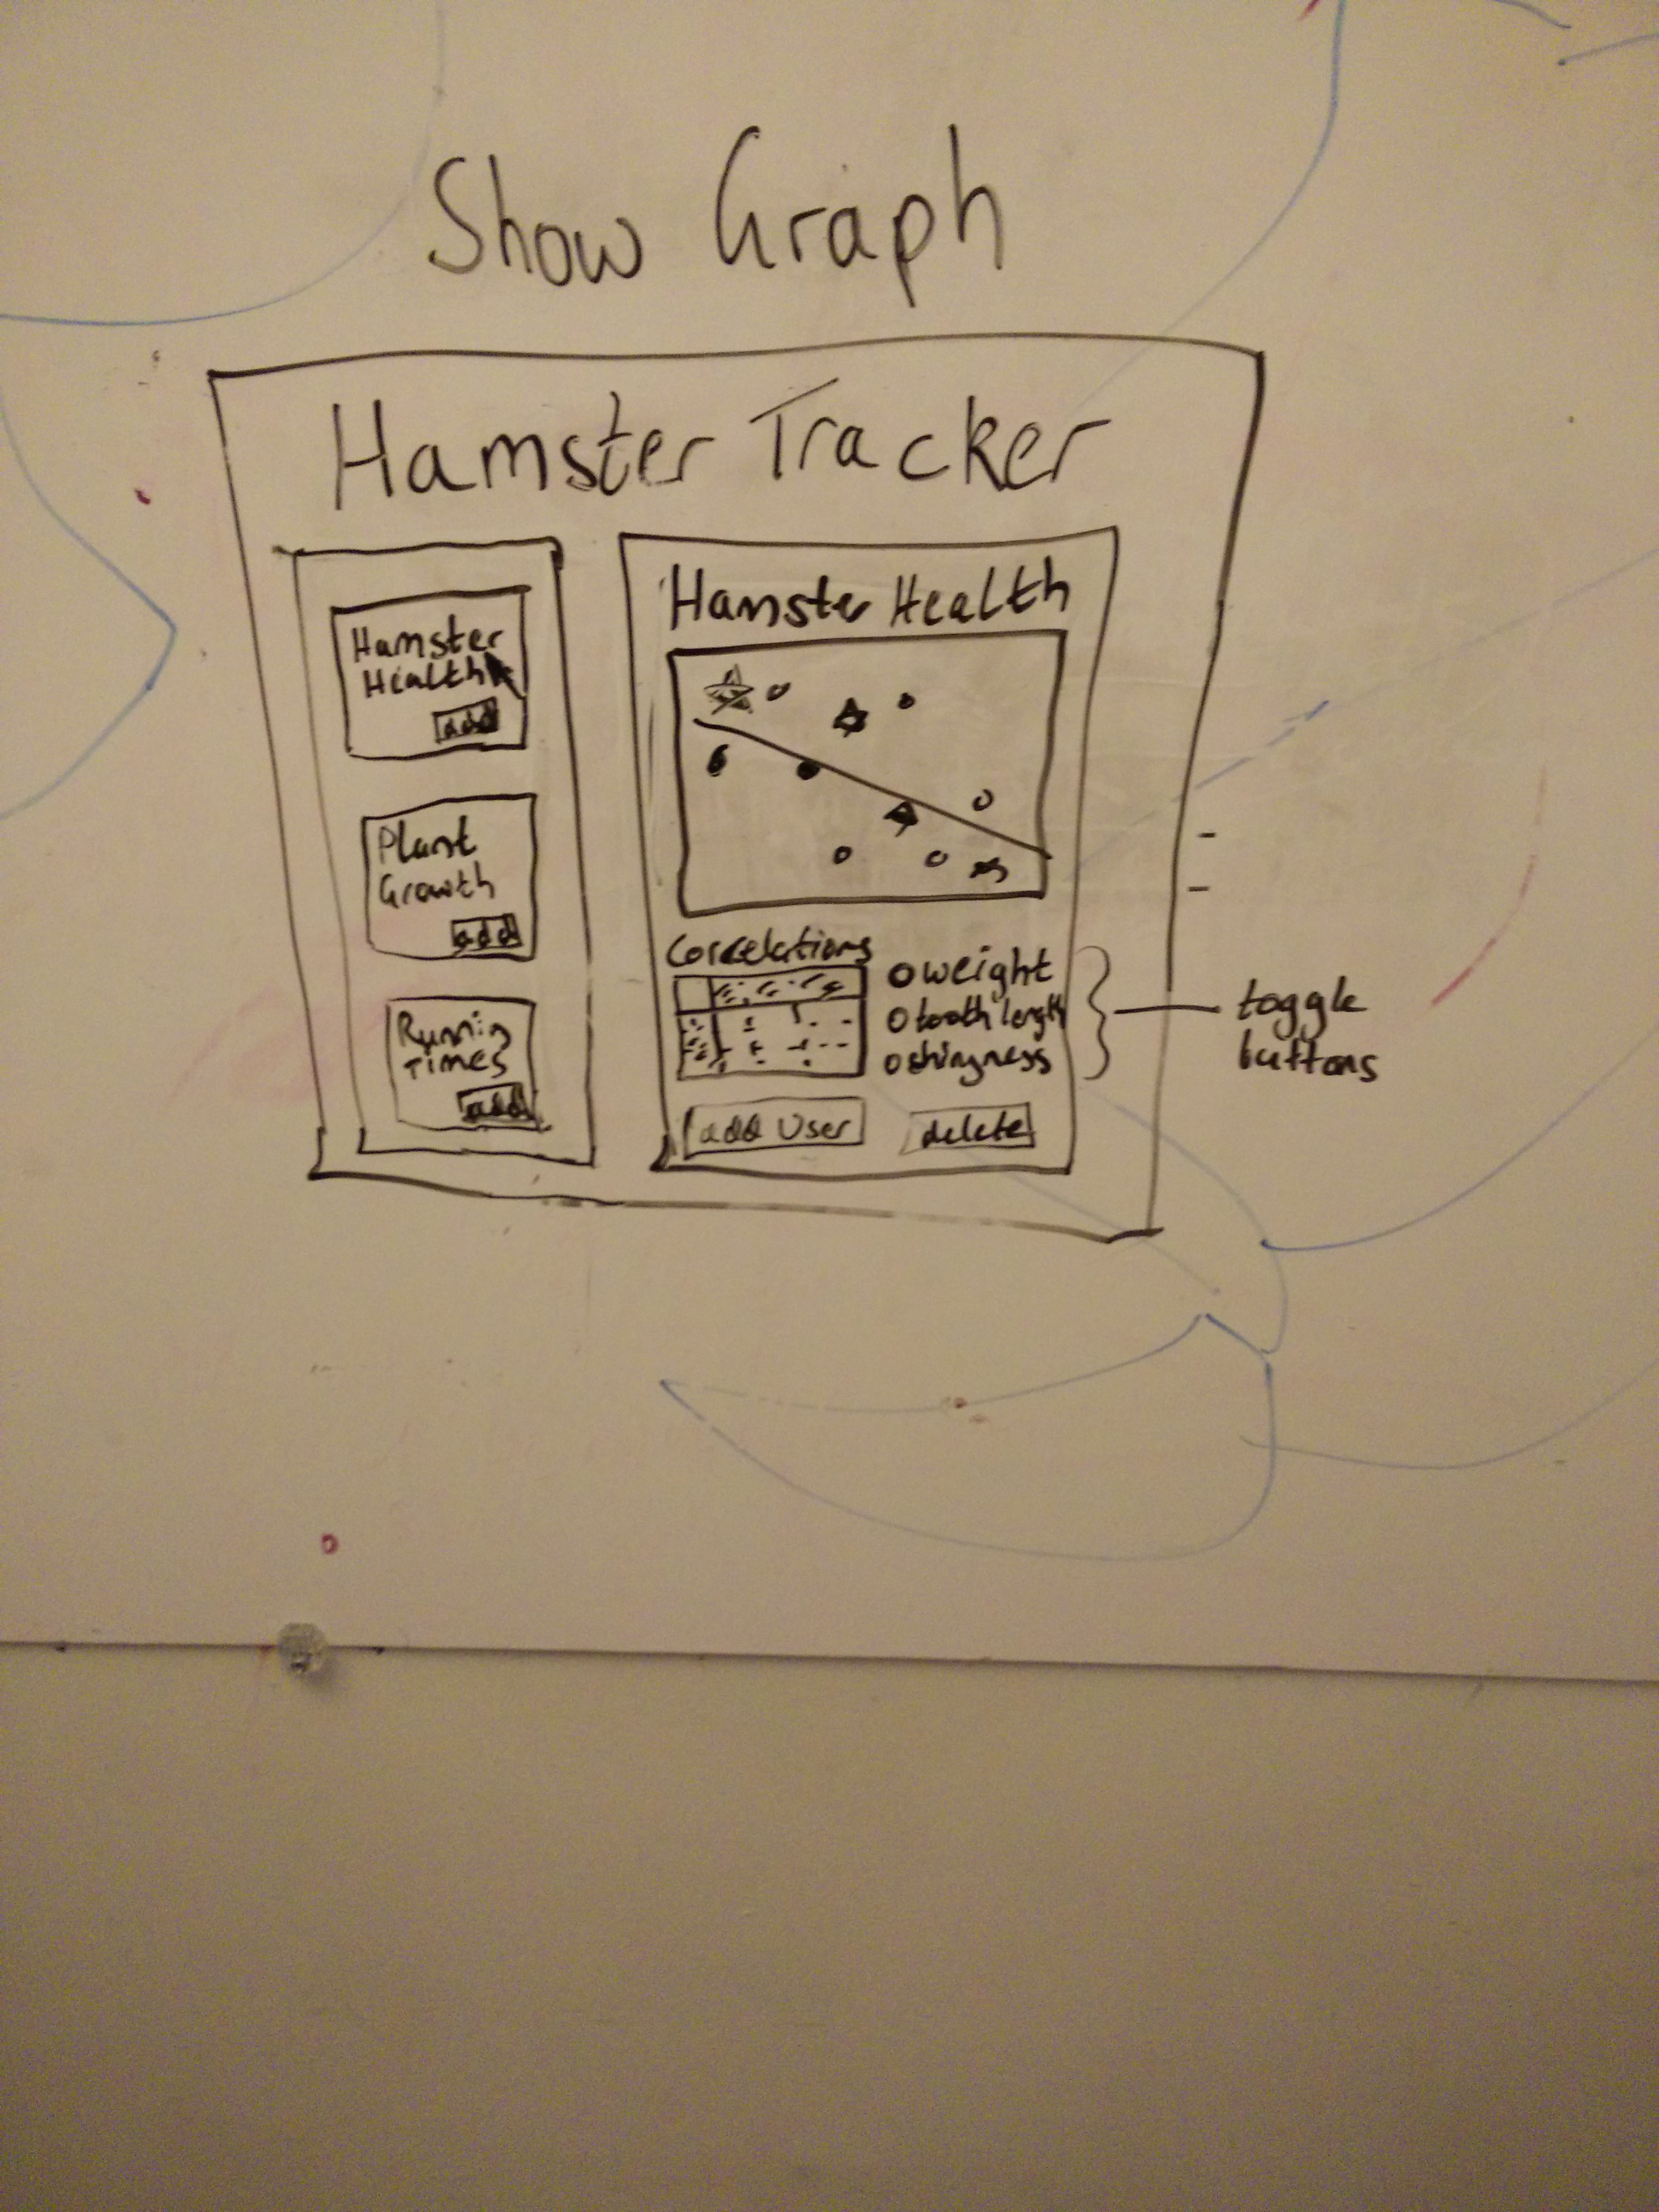 Show Graph
Hamster Tracker
Hamster
Health
add
Plant
Growth
add
Runnin
Times
add
Hamster Health
Correlations
weight
tooth length
shinyness
add User
delete
toggle
buttons